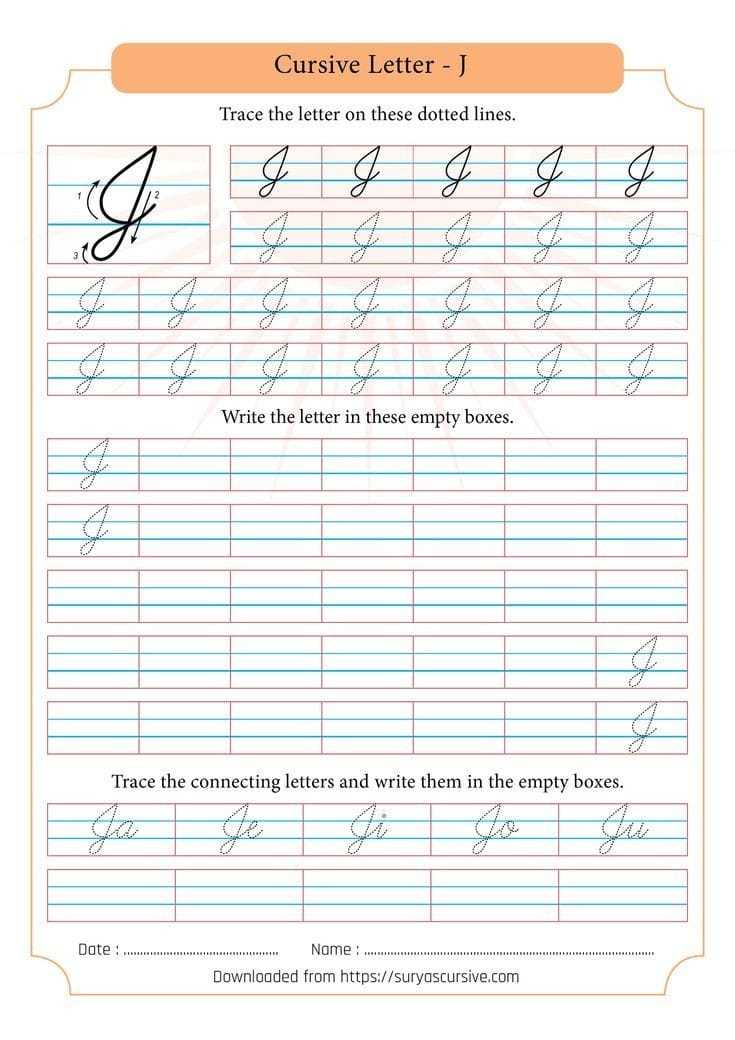 Cursive Letter - J
Trace the letter on these dotted lines.
1 2 3 J J J J J J
J J J J J
J J J J J J J
J J J J J J J
Write the letter in these empty boxes.
J
J
J
J
Trace the connecting letters and write them in the empty boxes.
Ja Je Ji Jo Ju
Date : ............................................... Name : ........................................................................................
Downloaded from https://suryascursive.com